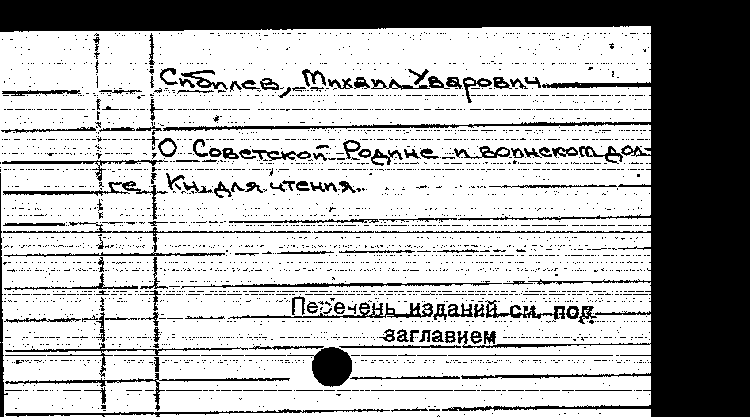 Михаил Уварович
О Советской Родине и воинском дол-
ге. Кн. для чтения.
Перечень изданий см. под
заглавием